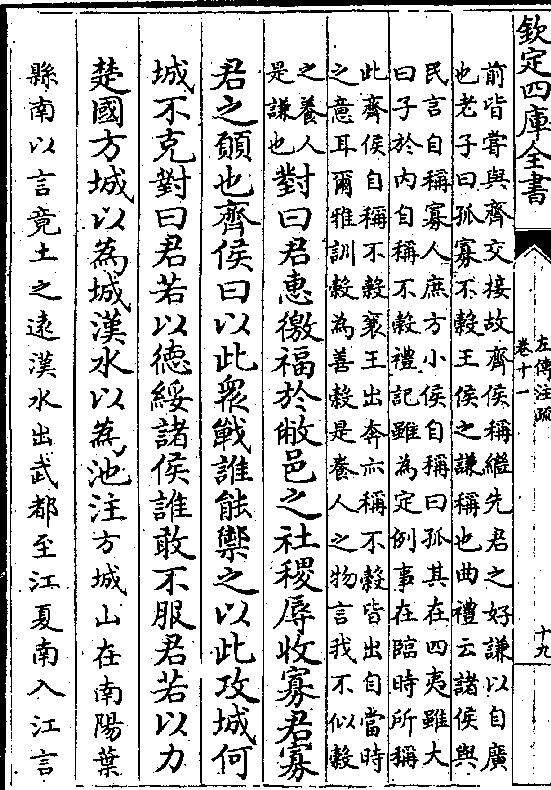 欽定四庫全書
左傳注疏
卷十一
十九
前皆嘗與齊交接故齊侯稱繼先君之好謙以自廣
也老子曰孤寡不穀王侯之謙稱也曲禮云諸侯與
民言自稱寡人庶方小侯自稱曰孤其在四夷雖大
曰子於內自稱不穀禮記雖為定例事在臨時所稱
此齊侯自稱不穀襄王出奔亦稱不穀皆出自當時
之意耳爾雅訓穀為善穀是養人之物言我不似穀
之養人
是謙也
對曰君惠徼福於敝邑之社稷辱收寡君寡
君之願也齊侯曰以此衆戰誰能禦之以此攻城何
城不克對曰君若以德綏諸侯誰敢不服君若以力
楚國方城以為城漢水以為池注方城山在南陽葉
縣南以言竟土之遠漢水出武都至江夏南入江言